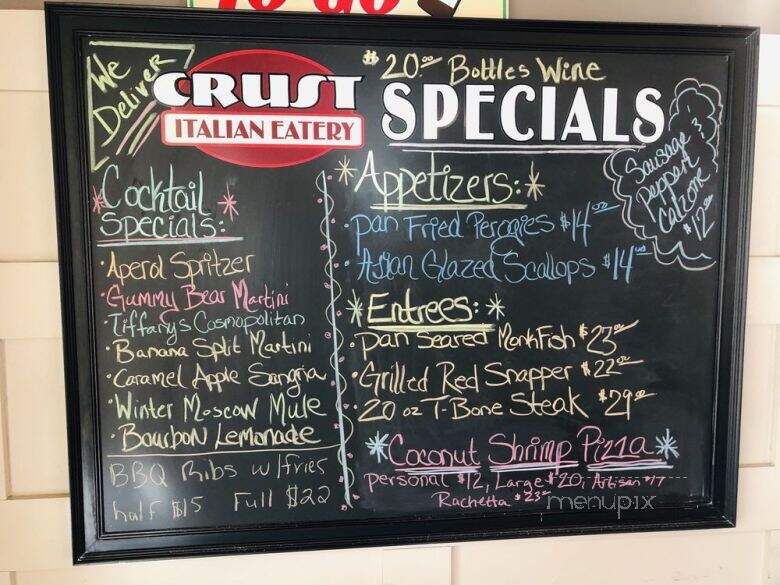 TO GO
We
Deliver
CRUST
ITALIAN EATERY
$20.00 Bottles Wine
SPECIALS
Sausage &
Peppers
Calzone
$12.00
Cocktail
Specials:
· Aperol Spritzer
· Gummy Bear Martini
· Tiffany's Cosmopolitan
· Banana Split Martini
· Caramel Apple Sangria
· Winter Moscow Mule
· Bourbon Lemonade
BBQ Ribs w/fries
half $15 Full $22
* Appetizers: *
· Pan Fried Perogies $14.00
· Asian Glazed Scallops $14.00
* Entrees: *
· Pan Seared MonkFish $23.00
· Grilled Red Snapper $22.00
· 20 oz T-Bone Steak $29.00
* Coconut Shrimp Pizza *
personal $12, Large $20, Artisan $17
Rachetta $23.00
menupix